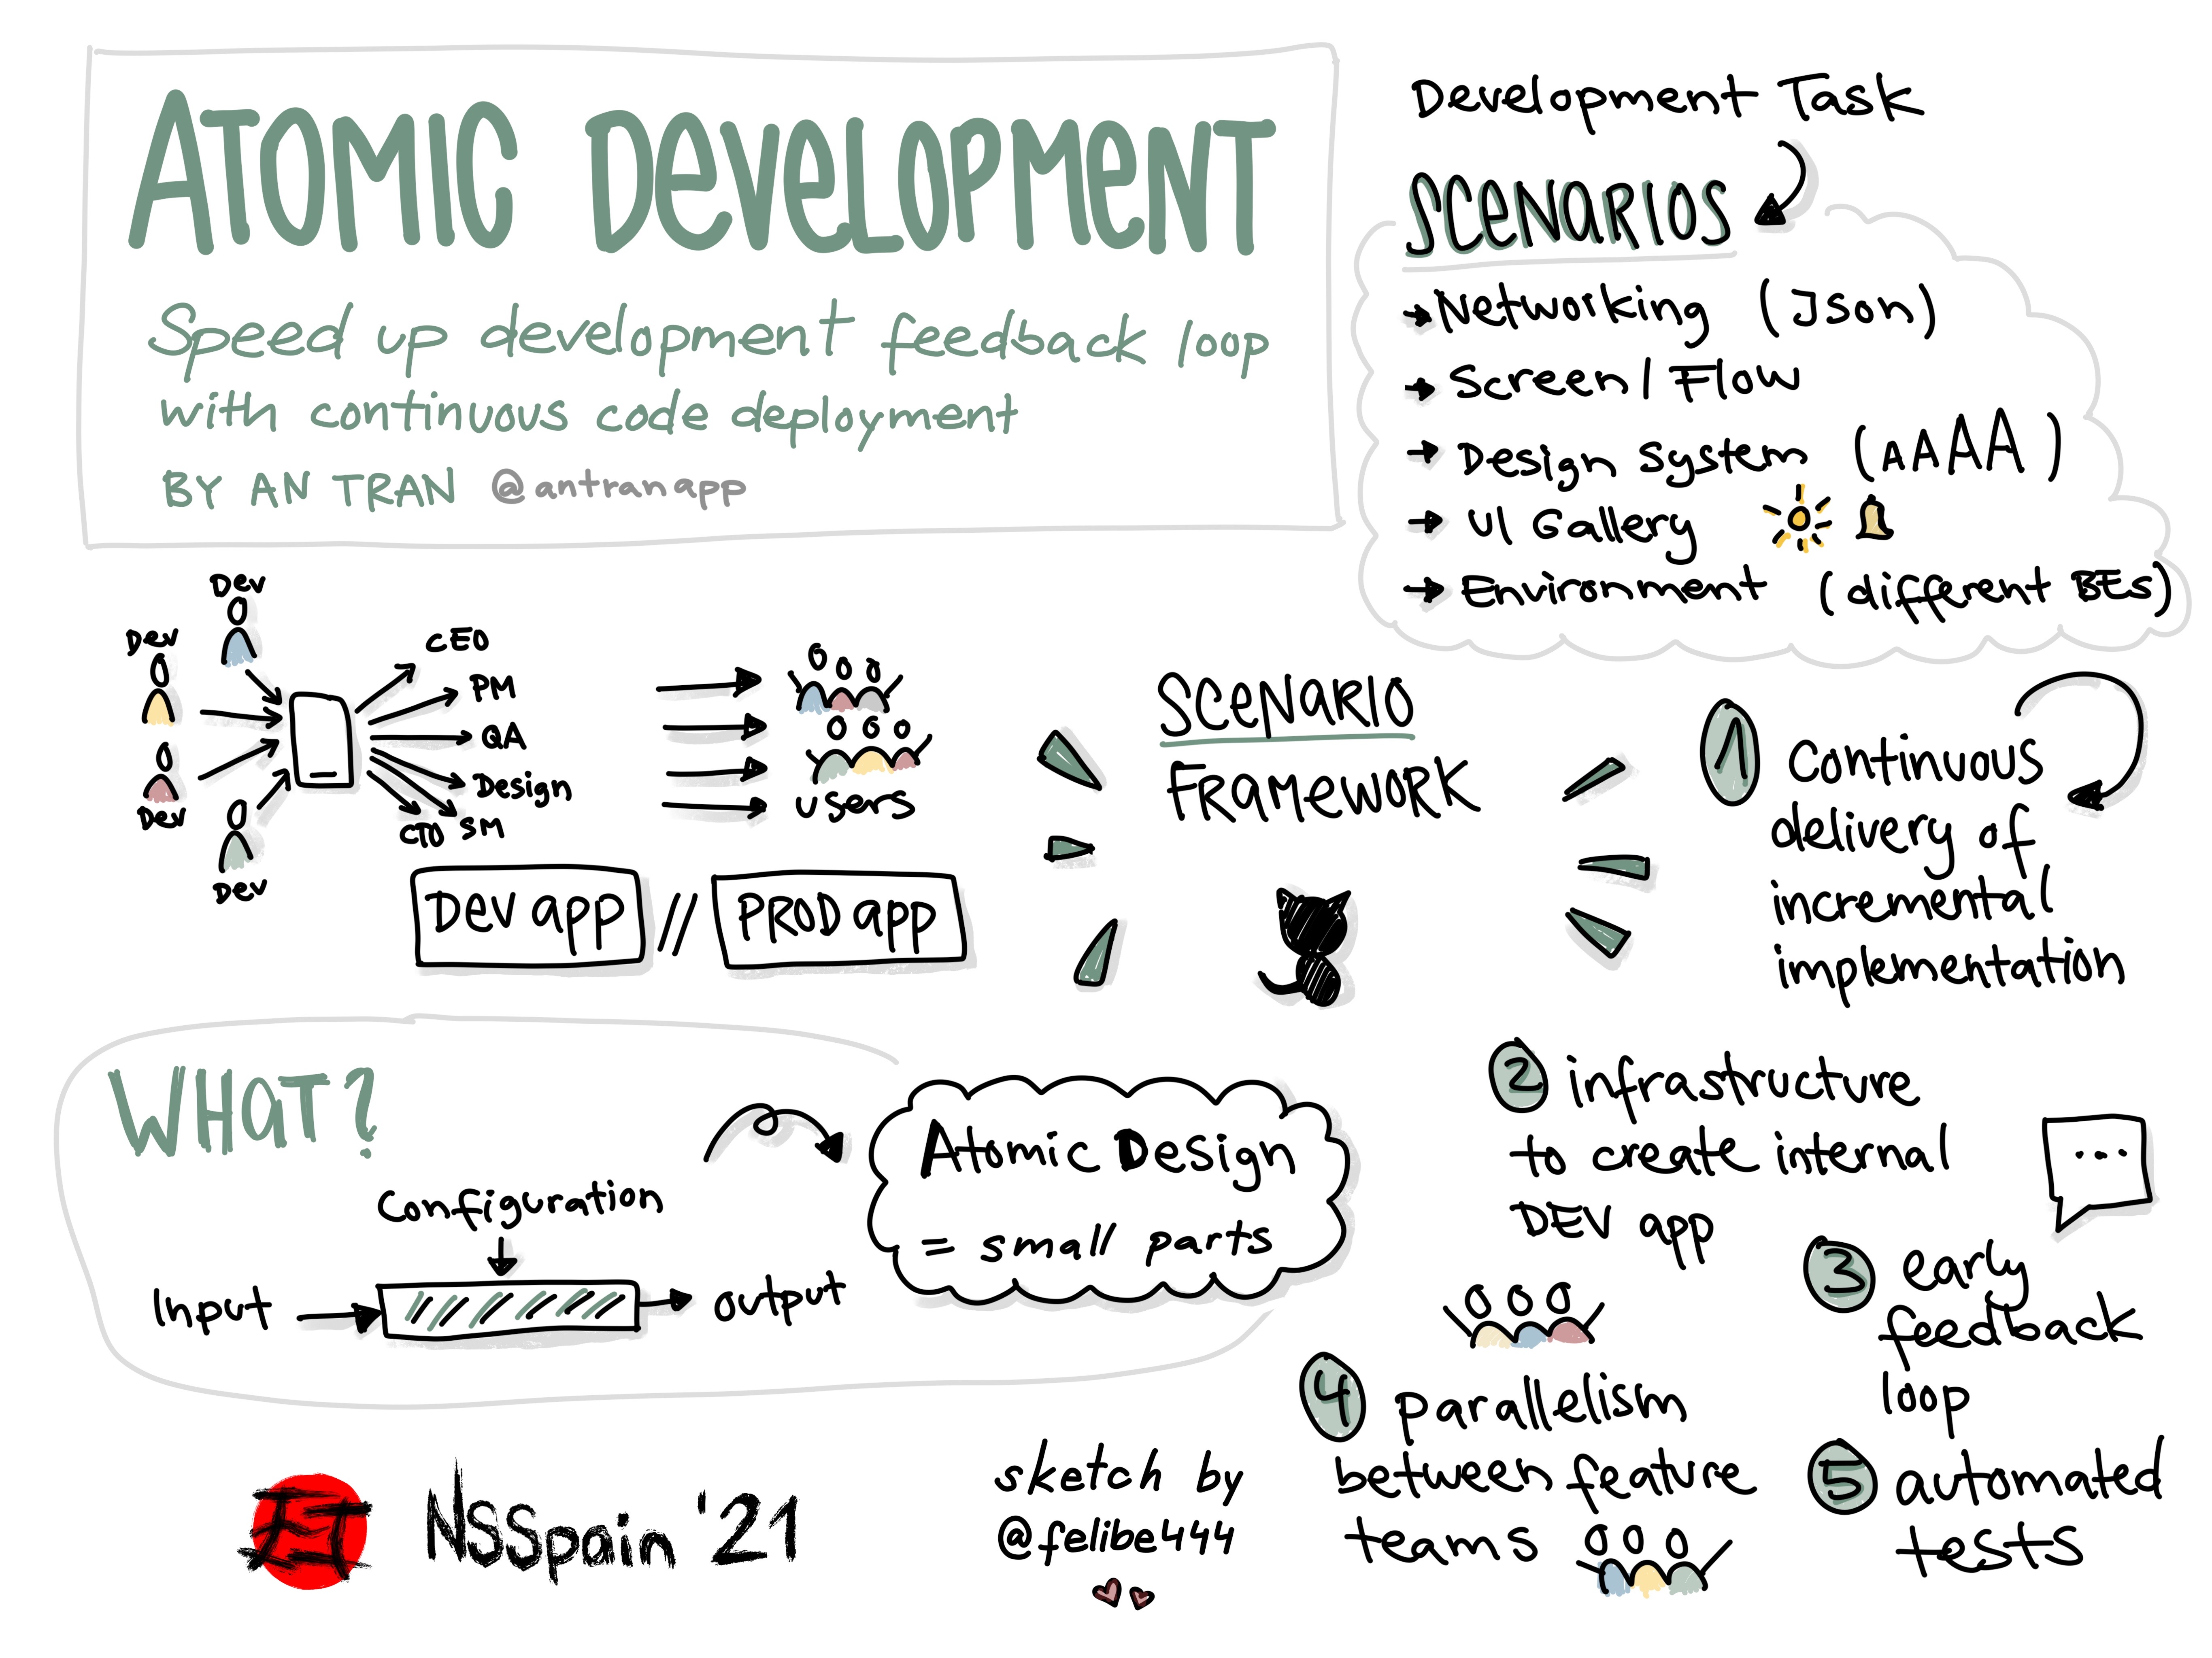 ATOMIC DEVELOPMENT
Speed up development feedback loop
with continuous code deployment
BY AN TRAN @antranapp
Development Task
SCENARIOS
Networking (Json)
Screen / Flow
Design System (AAAA)
UI Gallery
Environment (different BEs)
Dev
Dev
Dev
Dev
CEO
PM
QA
Design
SM
CTO
users
Dev app // PROD app
SCENARIO
FRAMEWORK
1 continuous
delivery of
incremental
implementation
2 infrastructure
to create internal
DEV app
3 early
feedback
loop
4 parallelism
between feature
teams
5 automated
tests
WHAT?
Configuration
Input
output
Atomic Design
= small parts
NSSpain '21
sketch by
@felibe444